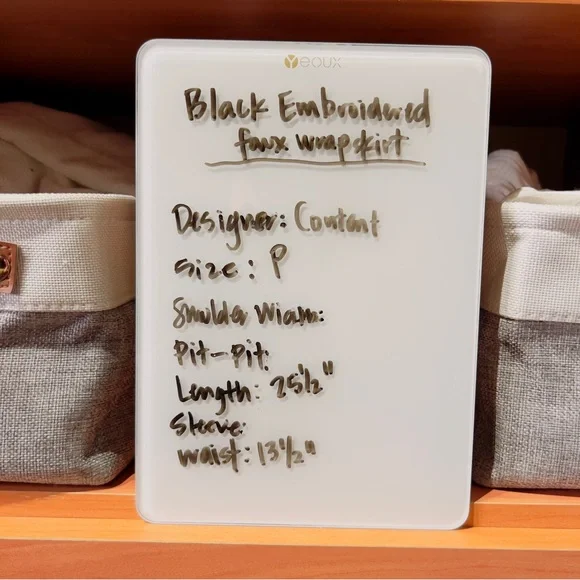 Yeoux
Black Embroidered
faux wrap skirt
Designer: Content
size: P
Shoulder Width:
Pit-Pit:
Length: 25 1/2"
Sleeve:
waist: 13 1/2"